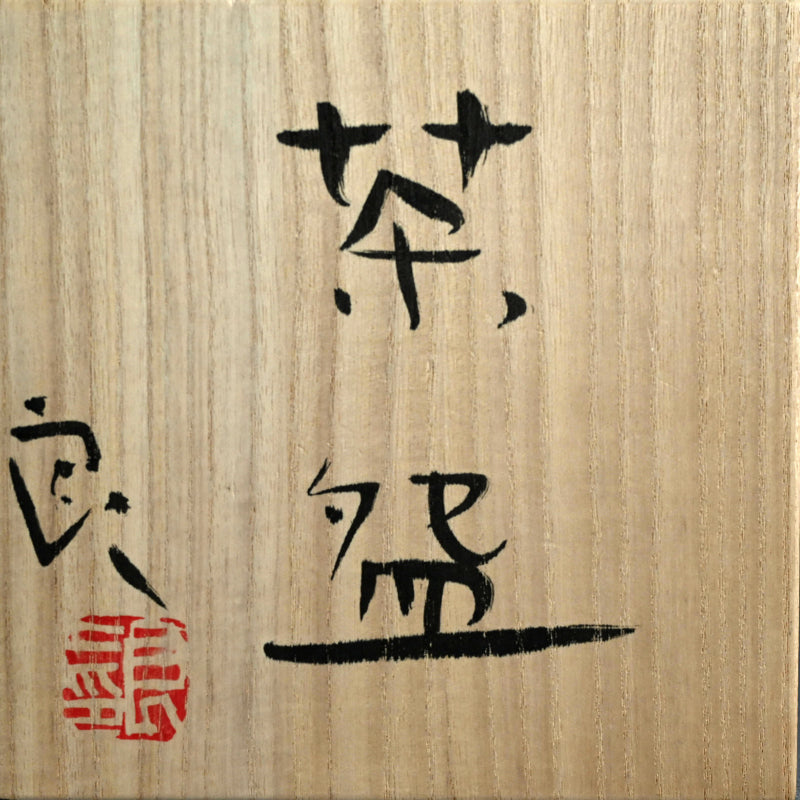 茶盌
良